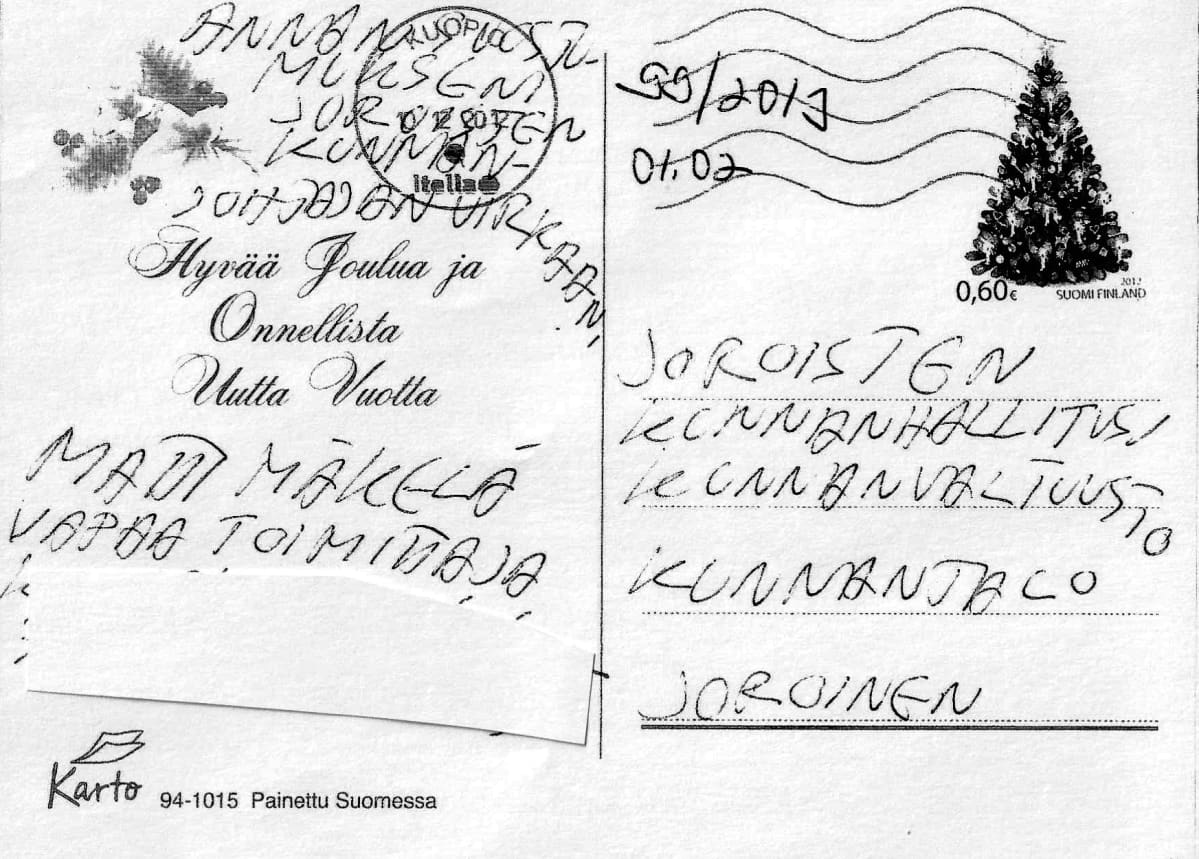 ANNAN SUOSTU-
MUKSENI
JOROISTEN
KUNNAN-
JOHTAJAN VIRKAAN.
KUOPIO
10 12 2012
Itella
Hyvää Joulua ja
Onnellista
Uutta Vuotta
MATTI MÄKELÄ
VAPAA TOIMITTAJA
Karto
94-1015 Painettu Suomessa
99/2013
01.02
2012
0,60€ SUOMI FINLAND
JOROISTEN
KUNNANHALLITUS/
KUNNANVALTUUSTO
KUNNANTALO
JOROINEN